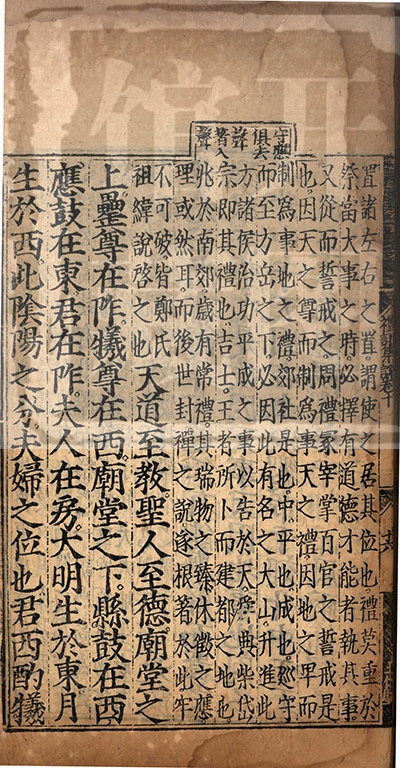 守應
俱去
聲
著入
聲
置諸左右之置謂使之居其位也禮莫重於
祭當大事之時必擇有道德才能者執其事
又從而誓戒之周禮冢宰掌百官之誓戒是
也因天之尊而制爲事天之禮因地之卑而
制爲事地之禮郊社是也中平也成也廵守
而至方岳之下必因此有名之大山升進此
方諸侯治功平成之事以告於天舜典柴岱
宗即其禮也吉土王者所卜而建都之地也
兆於南郊歲有常禮其瑞物之臻休徵之應
理或然耳而後世封禪之說遂根著於此牢
不可破皆鄭氏
祖緯說啓之也
天道至教聖人至德廟堂之
上罍尊在阼犧尊在西廟堂之下縣鼓在西
應鼓在東君在阼夫人在房大明生於東月
生於西此陰陽之分夫婦之位也君西酌犧